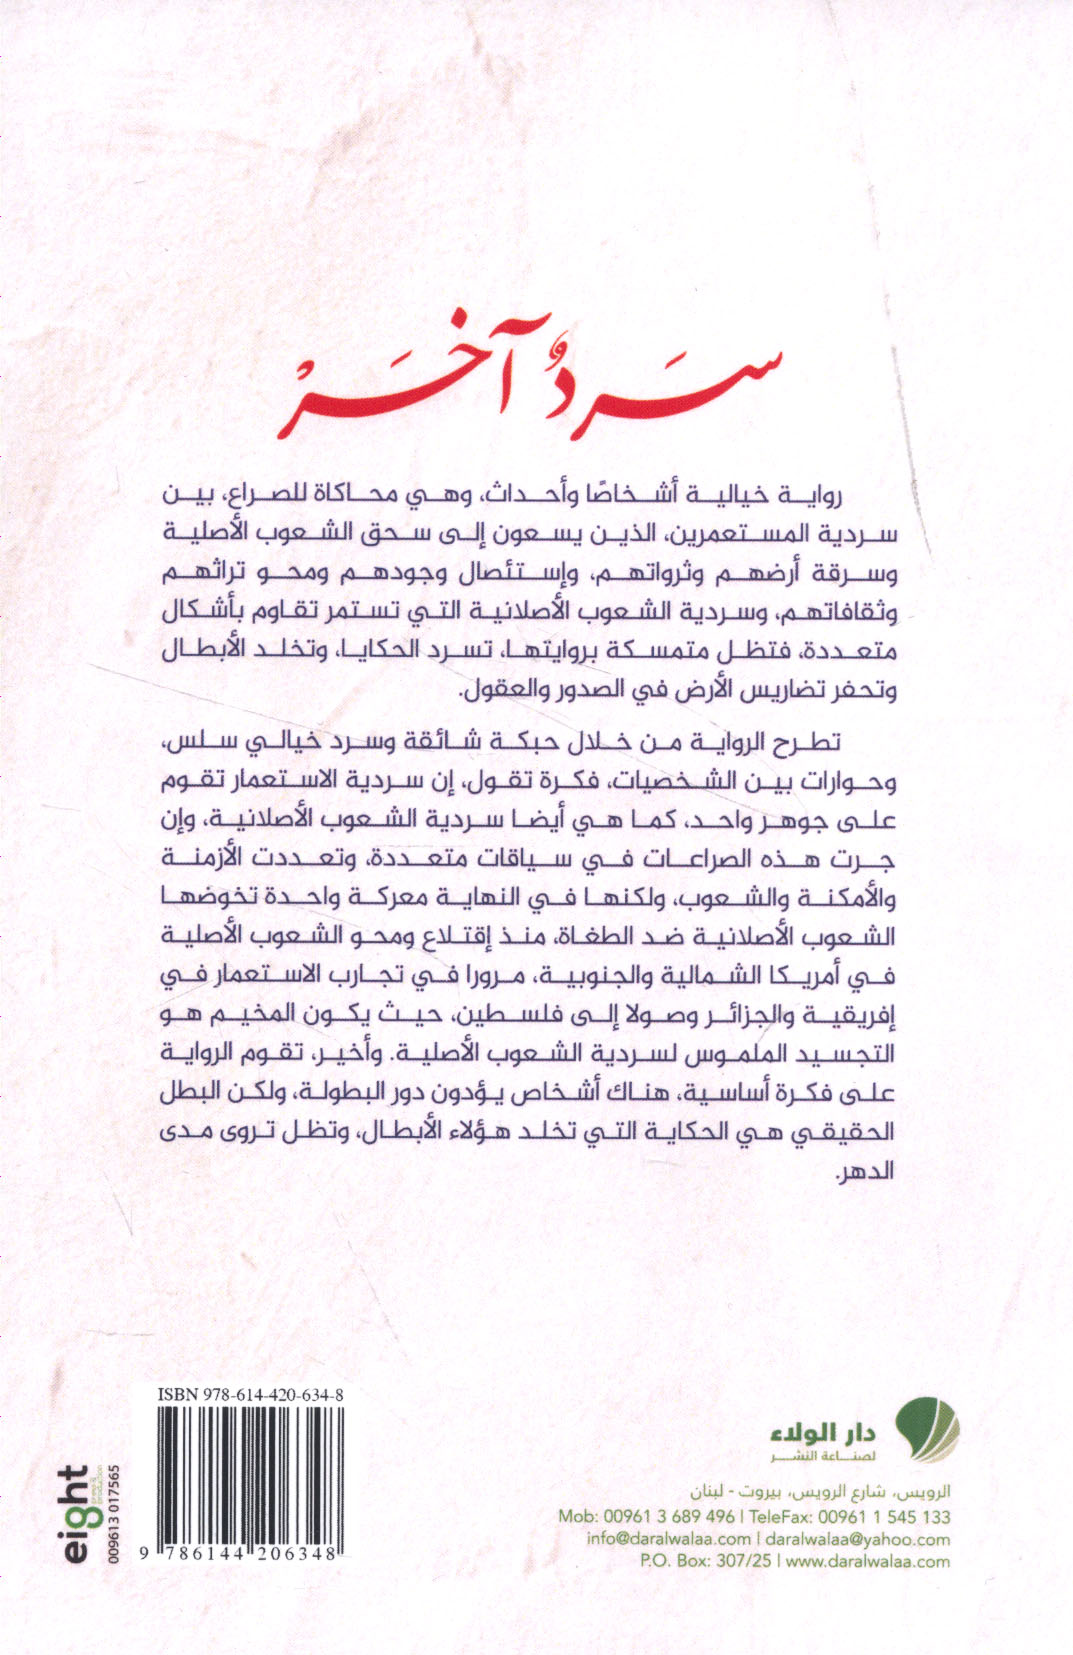 سَردٌ آخَرْ
رواية خيالية أشخاصًا وأحداث، وهي محاكاة للصراع، بين
سردية المستعمرين، الذين يسعون إلى سحق الشعوب الأصلية
وسرقة أرضهم وثرواتهم، وإستئصال وجودهم ومحو تراثهم
وثقافاتهم، وسردية الشعوب الأصلانية التي تستمر تقاوم بأشكال
متعددة، فتظل متمسكة بروايتها، تسرد الحكايا، وتخلد الأبطال
وتحفر تضاريس الأرض في الصدور والعقول.
تطرح الرواية من خلال حبكة شائقة وسرد خيالي سلس،
وحوارات بين الشخصيات، فكرة تقول، إن سردية الاستعمار تقوم
على جوهر واحد، كما هي أيضا سردية الشعوب الأصلانية، وإن
جرت هذه الصراعات في سياقات متعددة، وتعددت الأزمنة
والأمكنة والشعوب، ولكنها في النهاية معركة واحدة تخوضها
الشعوب الأصلانية ضد الطغاة، منذ إقتلاع ومحو الشعوب الأصلية
في أمريكا الشمالية والجنوبية، مرورا في تجارب الاستعمار في
إفريقية والجزائر وصولا إلى فلسطين، حيث يكون المخيم هو
التجسيد الملموس لسردية الشعوب الأصلية. وأخير، تقوم الرواية
على فكرة أساسية، هناك أشخاص يؤدون دور البطولة، ولكن البطل
الحقيقي هي الحكاية التي تخلد هؤلاء الأبطال، وتظل تروى مدى
الدهر.
ISBN 978-614-420-634-8
9 786144 206348
eight
009613 017565
دار الولاء
لصناعة النشر
الرويس، شارع الرويس، بيروت - لبنان
Mob: 00961 3 689 496 | TeleFax: 00961 1 545 133
info@daralwalaa.com | daralwalaa@yahoo.com
P.O. Box: 307/25 | www.daralwalaa.com